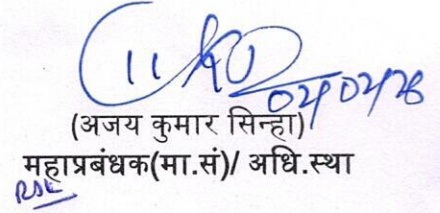 02/02/26
(अजय कुमार सिन्हा)
महाप्रबंधक(मा.सं)/ अधि.स्था